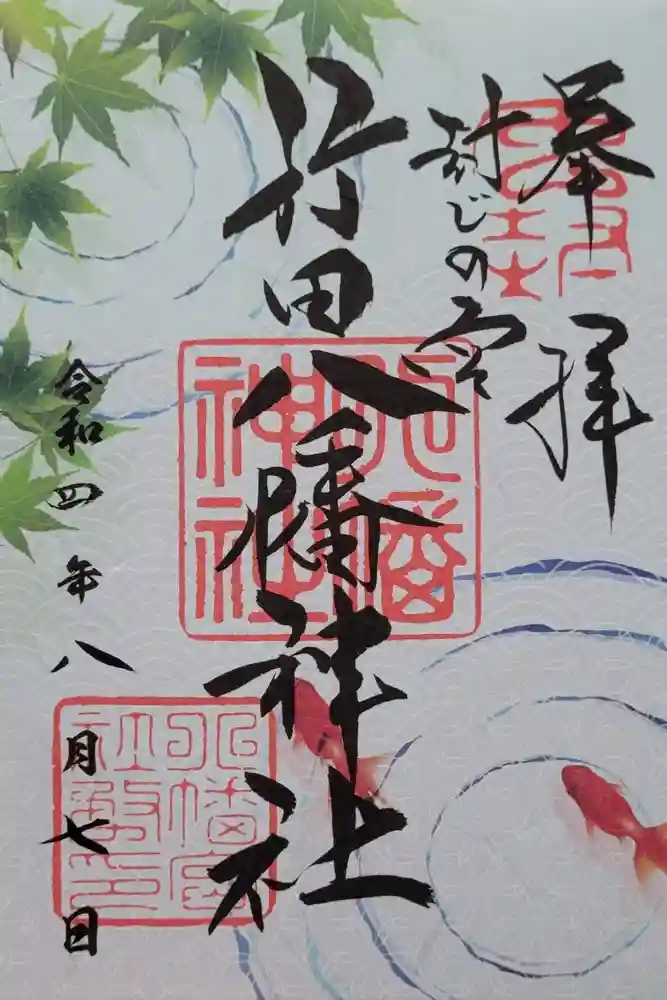 奉拝
封じの宮
竹田八幡神社
令和四年八月七日
八幡神社